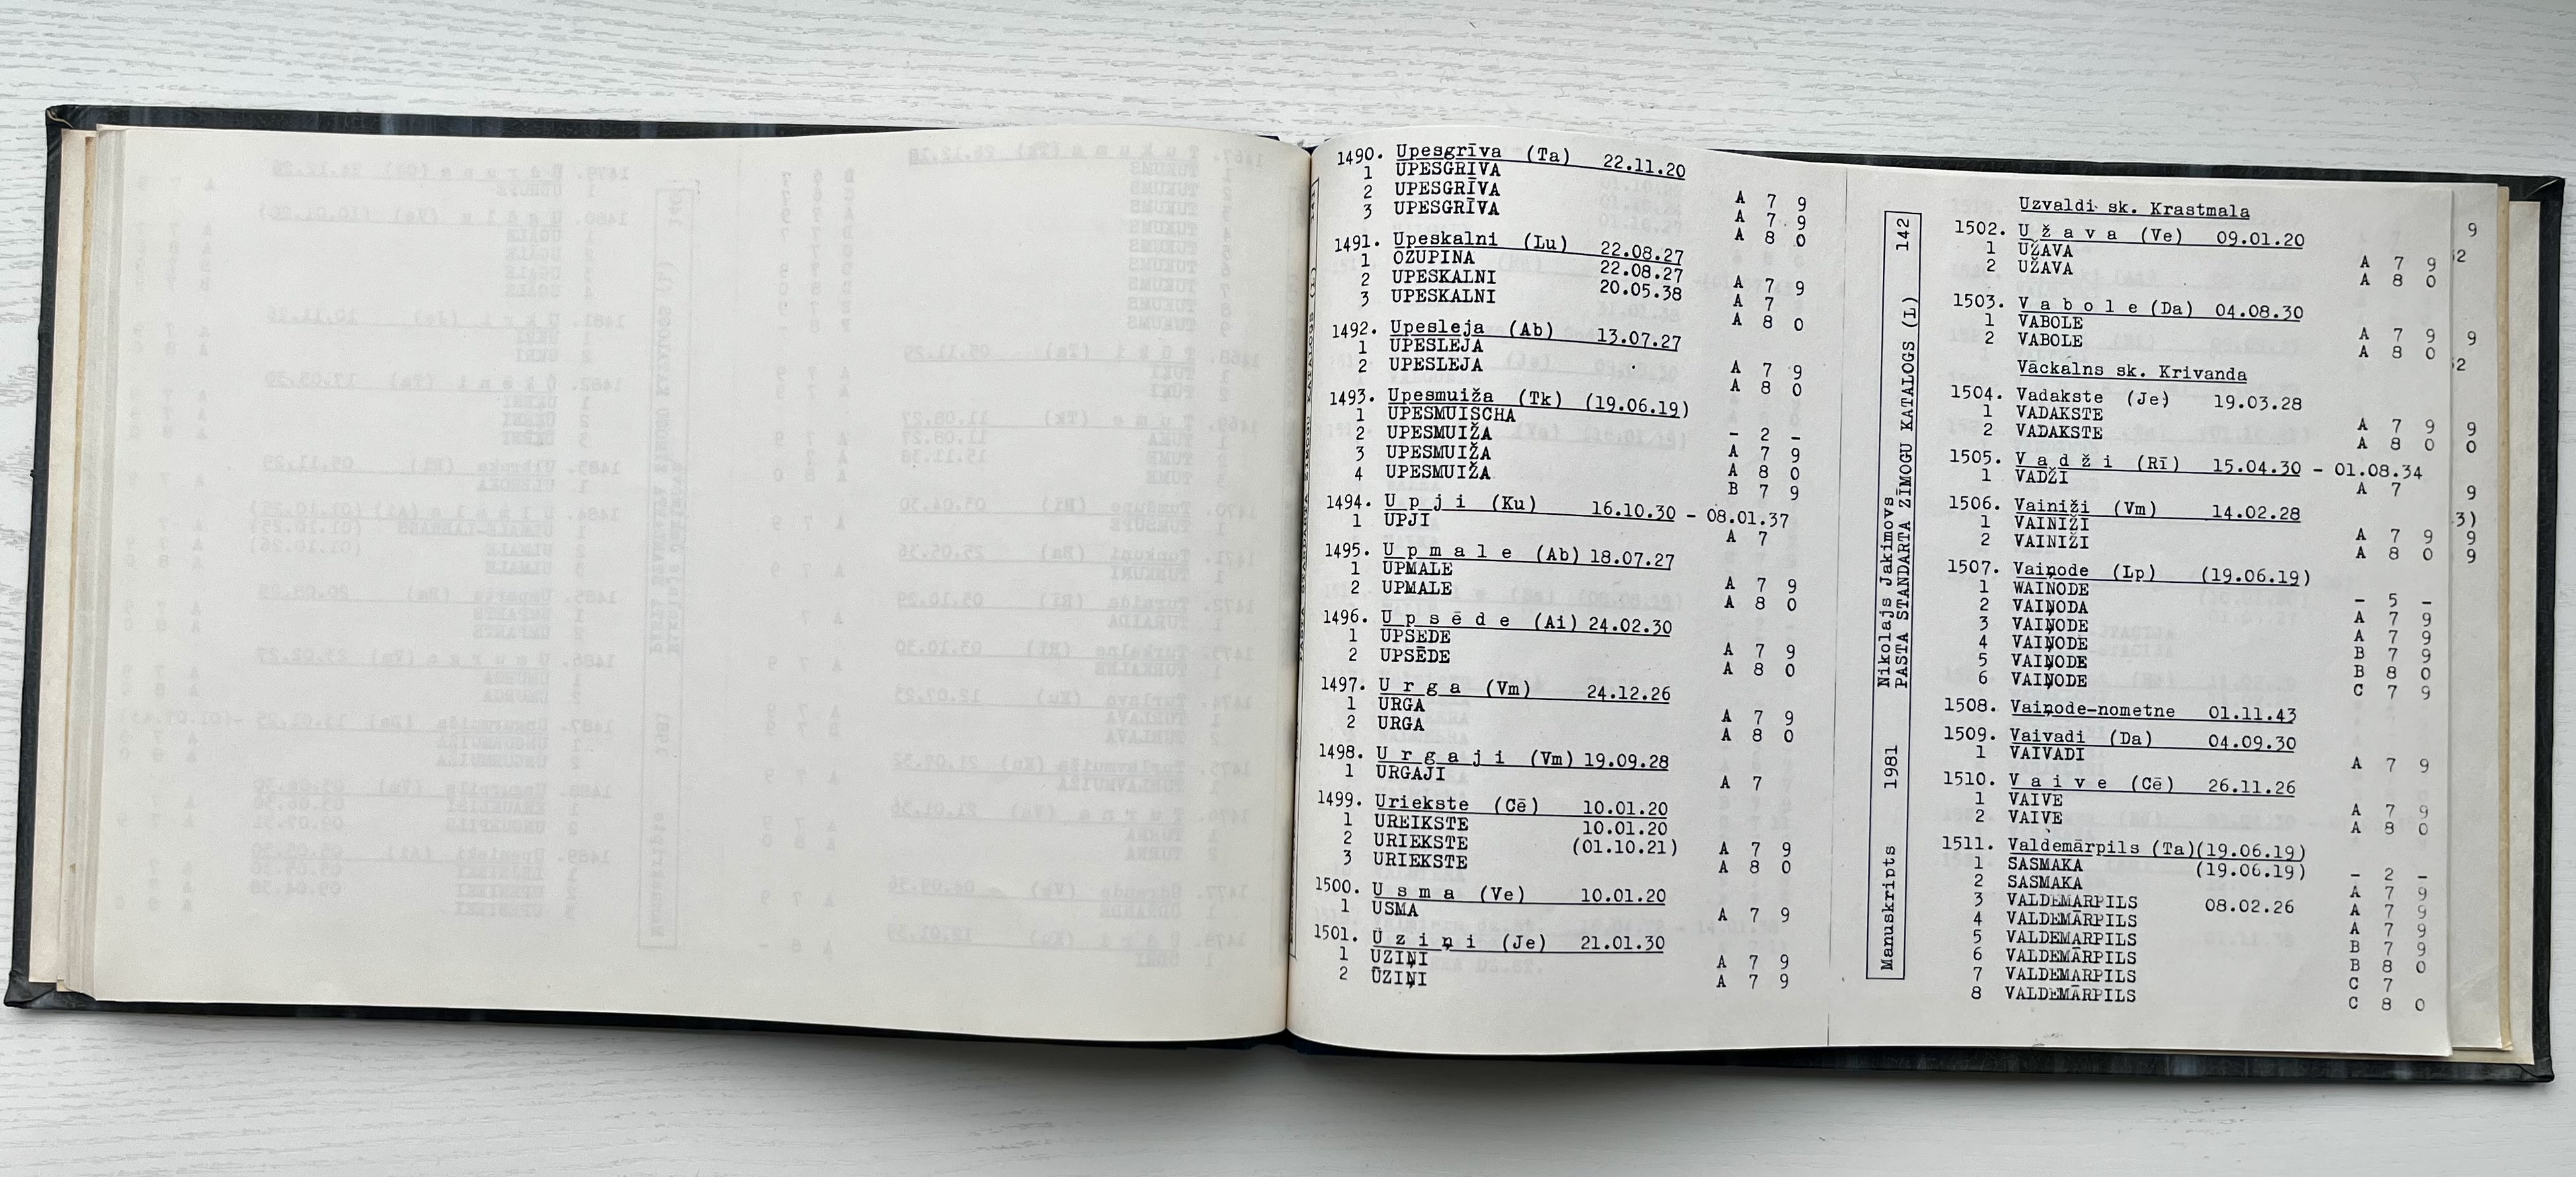 1490. Upesgrīva (Ta) 22.11.20
1 UPESGRĪVA A 7 9
2 UPESGRĪVA A 7 9
3 UPESGRĪVA A 8 0
1491. Upeskalni (Lu) 22.08.27
1 OZUPINA 22.08.27 A 7 9
2 UPESKALNI 20.05.38 A 7
3 UPESKALNI A 8 0
1492. Upesleja (Ab) 13.07.27
1 UPESLEJA A 7 9
2 UPESLEJA A 8 0
1493. Upesmuiža (Tk) (19.06.19)
1 UPESMUISCHA - 2 -
2 UPESMUIŽA A 7 9
3 UPESMUIŽA A 8 0
4 UPESMUIŽA B 7 9
1494. U p j i (Ku) 16.10.30 - 08.01.37
1 UPJI A 7
1495. U p m a l e (Ab) 18.07.27
1 UPMALE A 7 9
2 UPMALE A 8 0
1496. U p s ē d e (Ai) 24.02.30
1 UPSEDE A 7 9
2 UPSĒDE A 8 0
1497. U r g a (Vm) 24.12.26
1 URGA A 7 9
2 URGA A 8 0
1498. U r g a j i (Vm) 19.09.28
1 URGAJI A 7
1499. Uriekste (Cē) 10.01.20
1 UREIKSTE 10.01.20
2 URIEKSTE (01.10.21) A 7 9
3 URIEKSTE A 8 0
1500. U s m a (Ve) 10.01.20
1 USMA A 7 9
1501. Ū z i ņ i (Je) 21.01.30
1 ŪZIŅI A 7 9
2 ŪZIŅI A 7 9
Manuskripts 1981 Nikolajs Jakimovs 142
PASTA STANDARTA ZĪMOGU KATALOGS (L)
Uzvaldi sk. Krastmala
1502. U ž a v a (Ve) 09.01.20
1 UŽAVA A 7 9
2 UŽAVA A 8 0
1503. V a b o l e (Da) 04.08.30
1 VABOLE A 7 9
2 VABOLE A 8 0
Vāckalns sk. Krivanda
1504. Vadakste (Je) 19.03.28
1 VADAKSTE A 7 9
2 VADAKSTE A 8 0
1505. V a d ž i (Rī) 15.04.30 - 01.08.34
1 VADŽI A 7
1506. Vainiži (Vm) 14.02.28
1 VAINIŽI A 7 9
2 VAINIŽI A 8 0
1507. Vaiņode (Lp) (19.06.19)
1 WAINODE - 5 -
2 VAIŅODA A 7 9
3 VAIŅODE A 7 9
4 VAIŅODE B 7 9
5 VAIŅODE B 8 0
6 VAIŅODE C 7 9
1508. Vaiņode-nometne 01.11.43
1509. Vaivadi (Da) 04.09.30
1 VAIVADI A 7 9
1510. V a i v e (Cē) 26.11.26
1 VAIVE A 7 9
2 VAIVE A 8 0
1511. Valdemārpils (Ta)(19.06.19)
1 SASMAKA (19.06.19) - 2 -
2 SASMAKA A 7 9
3 VALDEMARPILS 08.02.26 A 7 9
4 VALDEMĀRPILS A 7 9
5 VALDEMĀRPILS B 7 9
6 VALDEMĀRPILS B 8 0
7 VALDEMARPILS C 7
8 VALDEMĀRPILS C 8 0